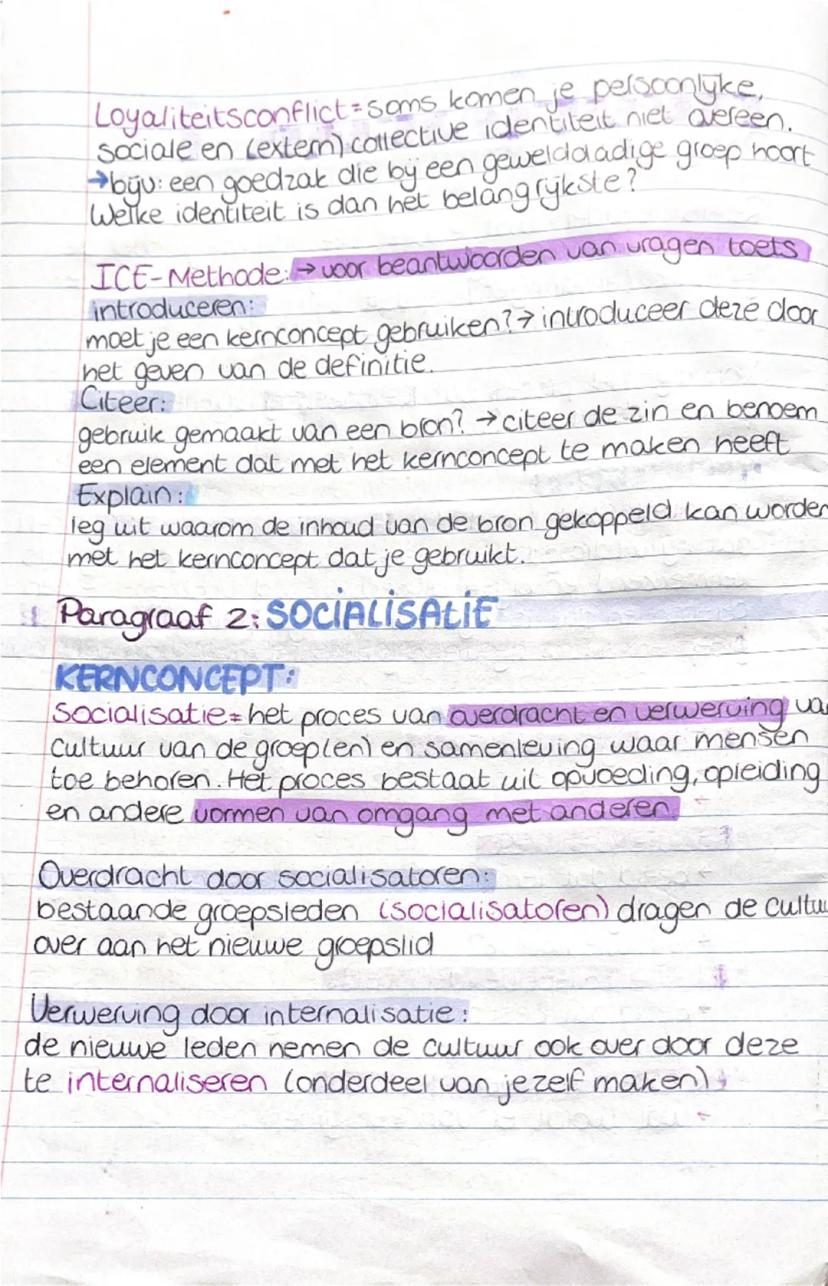 Loyaliteitsconflict = soms komen je persoonlijke,
sociale en (extern) collective identiteit niet overeen.
→ bijv: een goedzak die bij een gewelddadige groep hoort
Welke identiteit is dan het belangrijkste?
ICE-Methode: → voor beantwoorden van vragen toets
introduceren:
moet je een kernconcept gebruiken? → introduceer deze door
het geven van de definitie.
Citeer:
gebruik gemaakt van een bron? → citeer de zin en benoem
een element dat met het kernconcept te maken heeft
Explain:
leg uit waarom de inhoud van de bron gekoppeld kan worden
met het kernconcept dat je gebruikt.
Paragraaf 2: SOCIALISATIE
KERNCONCEPT:
Socialisatie = het proces van overdracht en verwerving va
cultuur van de groep(en) en samenleving waar mensen
toe behoren. Het proces bestaat uit opvoeding, opleiding
en andere vormen van omgang met anderen.
Overdracht door socialisatoren:
bestaande groepsleden (socialisatoren) dragen de cultuu
over aan het nieuwe groepslid
Verwerving door internalisatie:
de nieuwe leden nemen de cultuur ook over door deze
te internaliseren (onderdeel van jezelf maken)